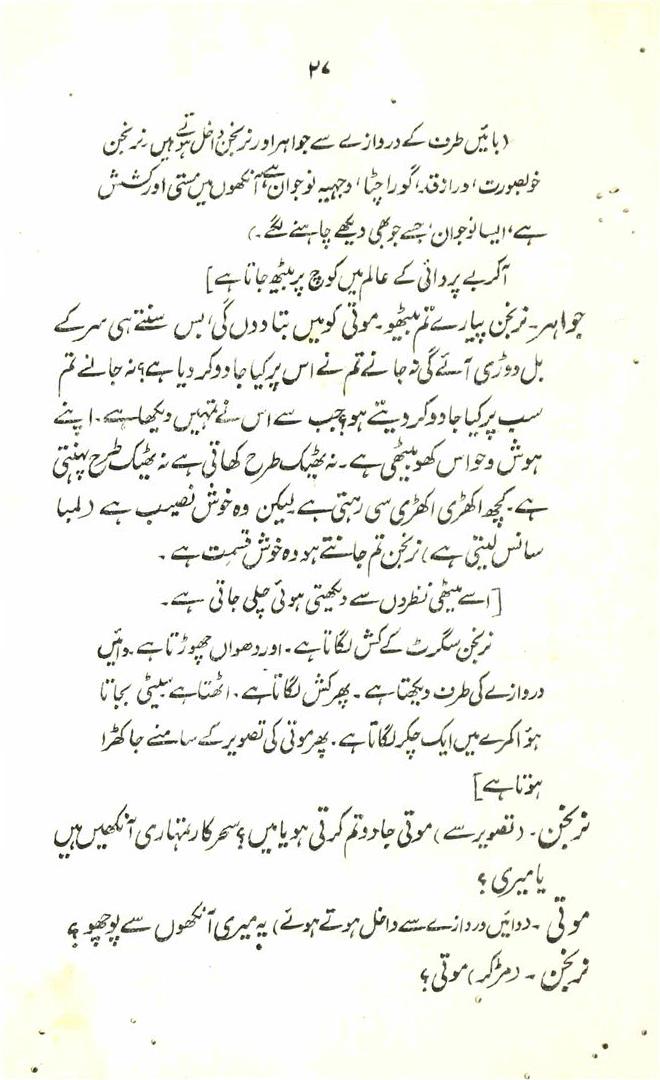 ۲۷
(بائیں طرف کے دروازے سے جواہر اور نرنجن داخل ہوتے ہیں۔ نرنجن
خوبصورت، دراز قد، گورا چٹا، وجیہہ نوجوان ہے، آنکھوں میں مستی اور کشش
ہے، ایسا نوجوان، جسے جو بھی دیکھے چاہنے لگے۔)
آکر بے پروائی کے عالم میں کوچ پر بیٹھ جاتا ہے]
جواہر۔ نرنجن پیارے تم بیٹھو۔ موتی کو میں بتا دوں گی، بس سنتے ہی سر کے
بل دوڑی آئے گی نہ جانے تم نے اس پر کیا جادو کر دیا ہے؟ نہ جانے تم
سب پر کیا جادو کر دیتے ہو؟ جب سے اس نے تمہیں دیکھا ہے۔ اپنے
ہوش و حواس کھو بیٹھی ہے۔ نہ ٹھیک طرح کھاتی ہے نہ ٹھیک طرح پہنتی
ہے۔ کچھ اکھڑی اکھڑی سی رہتی ہے لیکن وہ خوش نصیب ہے (لمبا
سانس لیتی ہے) نرنجن تم جانتے ہو وہ خوش قسمت ہے۔
[اسے میٹھی نظروں سے دیکھتی ہوئی چلی جاتی ہے۔
نرنجن سگرٹ کے کش لگاتا ہے۔ اور دھواں چھوڑتا ہے۔ دائیں
دروازے کی طرف دیکھتا ہے۔ پھر کش لگاتا ہے۔ اٹھتا ہے سیٹی بجاتا
ہؤا کمرے میں ایک چکر لگاتا ہے۔ پھر موتی کی تصویر کے سامنے جا کھڑا
ہوتا ہے]
نرنجن۔ (تصویر سے) موتی جادو تم کرتی ہو یا میں؟ سحر کار تمہاری آنکھیں ہیں
یا میری؟
موتی۔ (دائیں دروازے سے داخل ہوتے ہوئے) یہ میری آنکھوں سے پوچھو؟
نرنجن۔ (مڑ کر) موتی؟